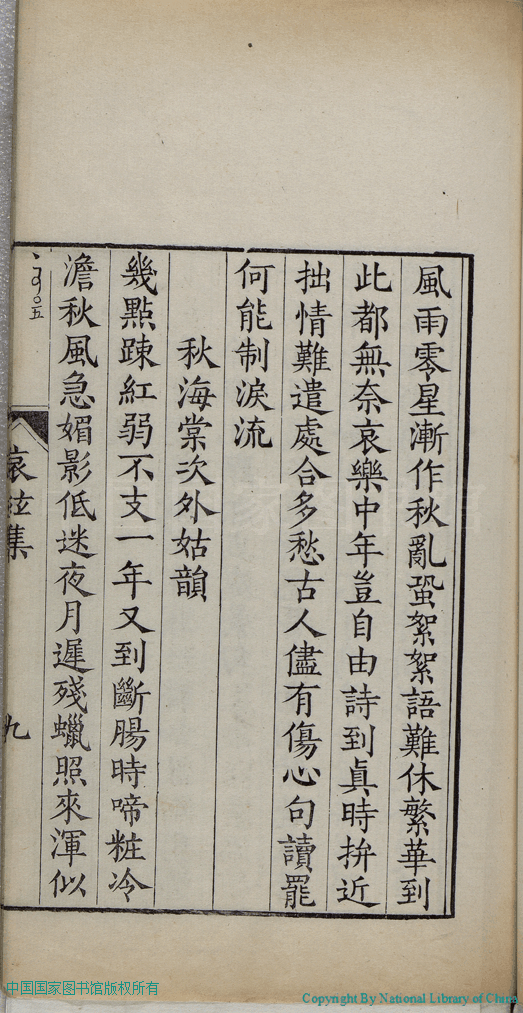 風雨零星漸作秋亂蛩絮絮語難休繁華到
此都無奈哀樂中年豈自由詩到眞時拚近
拙情難遣處合多愁古人儘有傷心句讀罷
何能制淚流
秋海棠次外姑韻
幾點踈紅弱不支一年又到斷腸時啼粧冷
澹秋風急媚影低迷夜月遲殘蠟照來渾似
哀絃集
九
中国国家图书馆版权所有
Copyright By National Library of China